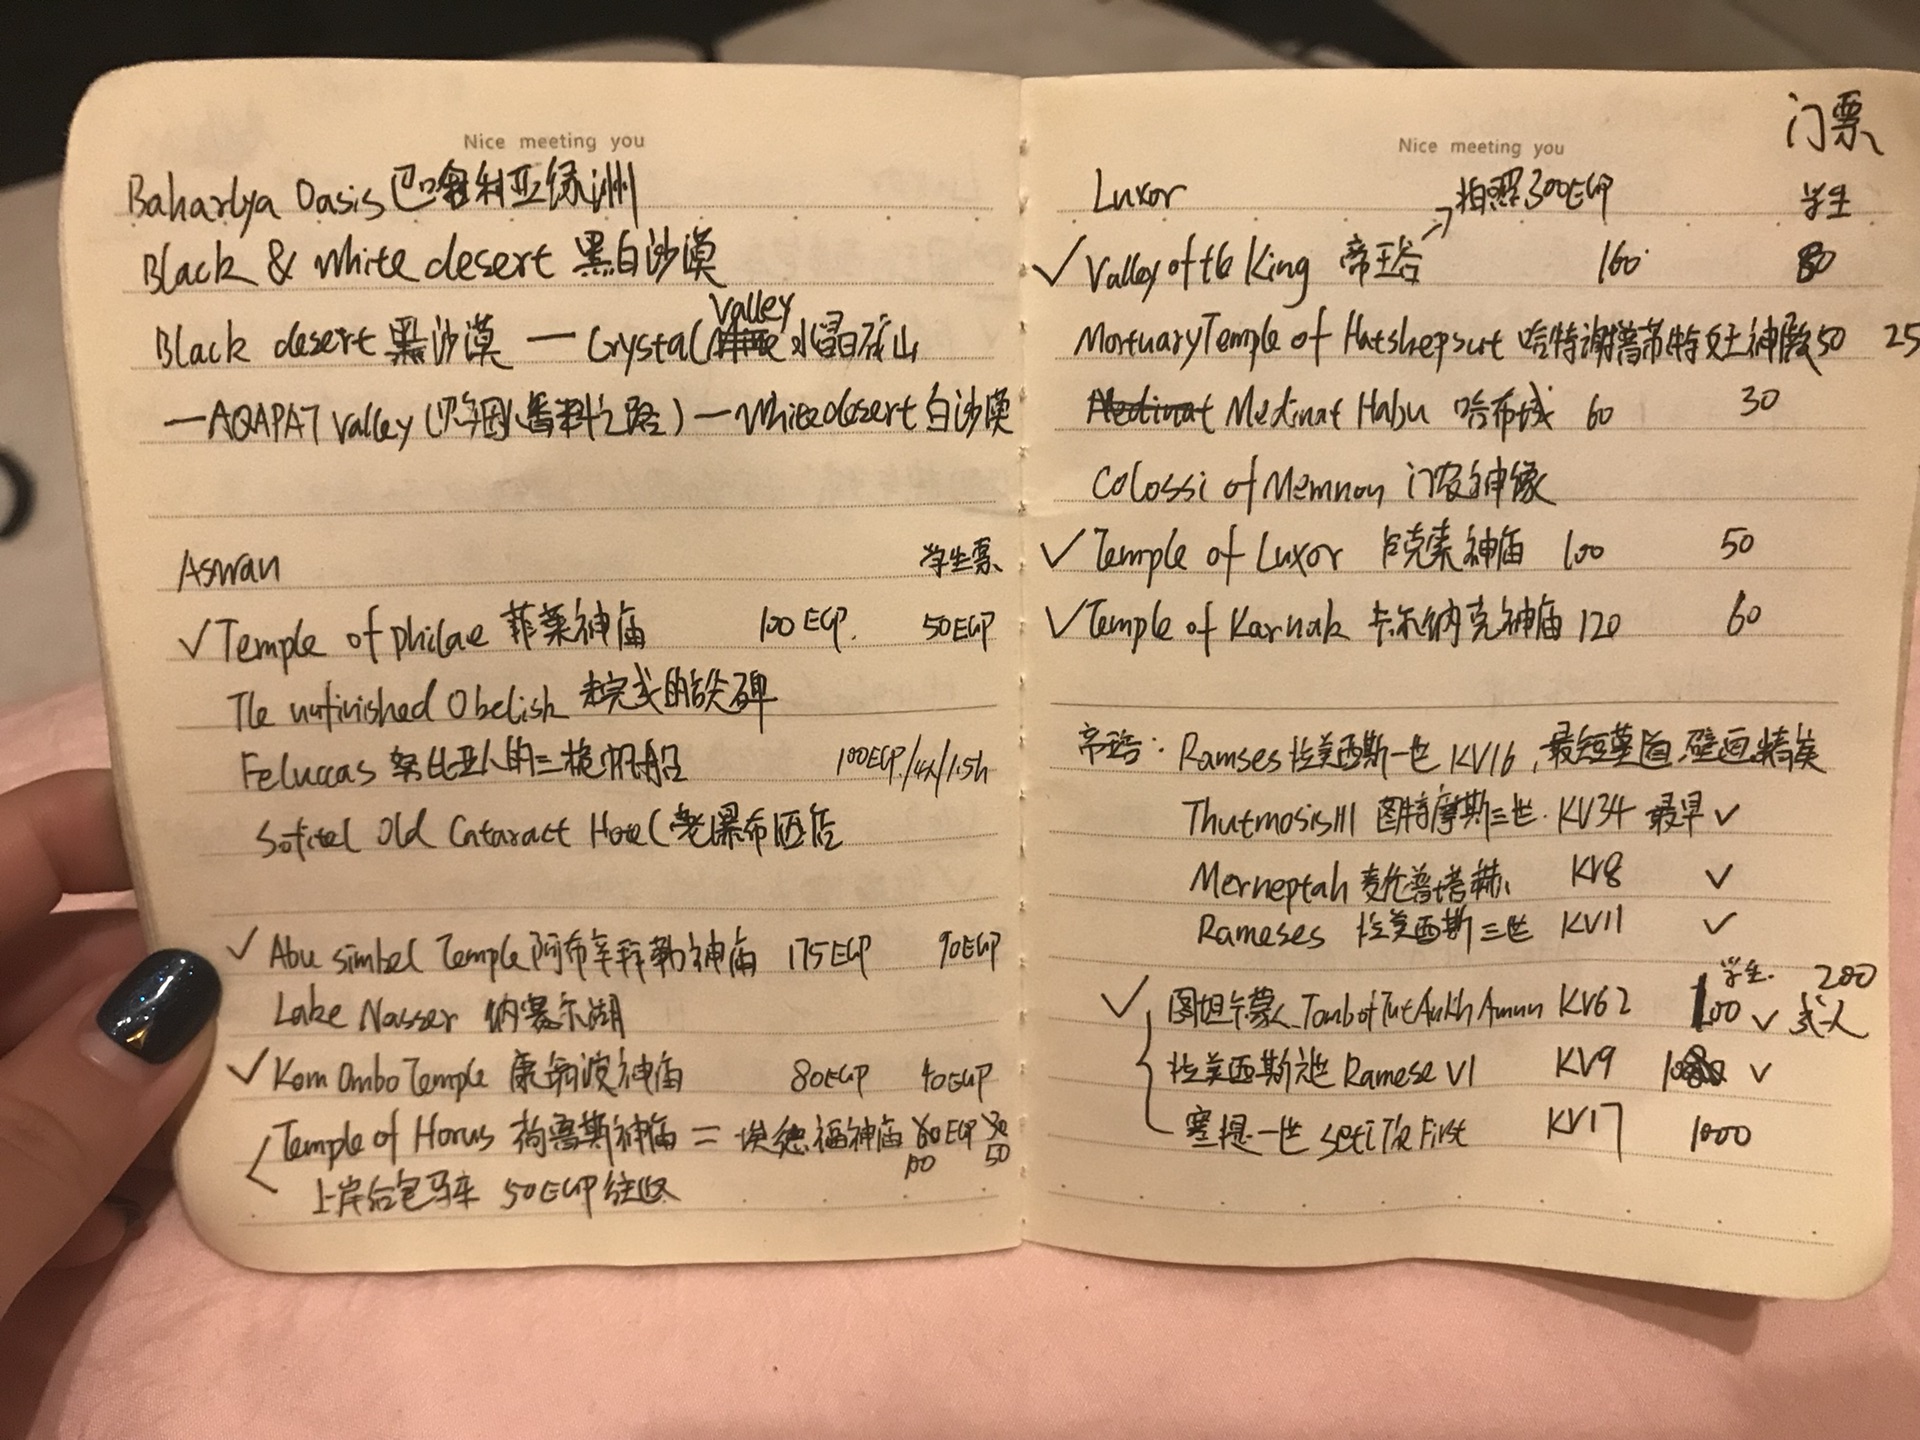 Nice meeting you
Baharlya Oasis 巴哈利亚绿洲
Black & White desert 黑白沙漠
Valley
Black desert 黑沙漠 — Crystal 水晶矿山
—AQAPAT Valley ( 香料之路) — White desert 白沙漠
Aswan 学生票
✓ Temple of philae 菲莱神庙 100 EGP. 50EGP
The unfinished Obelish 未完成的方尖碑
Feluccas 努比亚人的三桅帆船 100EGP/4人/1.5h
Sofitel Old Cataract Hotel 老瀑布酒店
✓ Abu simbel Temple 阿布辛拜勒神庙 175EGP 90EGP
Lake Nasser 纳赛尔湖
✓ Kom Ombo Temple 康翁波神庙 80EGP 40EGP
Temple of Horus 荷鲁斯神庙 = 埃德福神庙 60EGP 30
100 50
上岸后包马车 50EGP 往返
Nice meeting you
门票
Luxor 拍照300EGP 学生
✓ Valley of the King 帝王谷 160 80
Mortuary Temple of Hatshepsut 哈特谢普苏特女王神殿 50 25
Medinat Medinat Habu 哈布城 60 30
Colossi of Memnon 门农神像
✓ Temple of Luxor 卢克索神庙 100 50
✓ Temple of Karnak 卡尔纳克神庙 120 60
帝王谷: Ramses 拉美西斯一世 KV16, 最短墓道, 壁画精美
Thutmosis III 图特摩斯三世. KV34 最早 ✓
Merneptah 麦伦普塔赫 KV8 ✓
Rameses 拉美西斯三世 KV11 ✓
学生. 200
✓ 图坦卡蒙 Tomb of Tut Ankh Amun KV62 100 ✓ 成人
拉美西斯六世 Ramese VI KV9 ✓
塞提一世 Seti The First KV17 1000